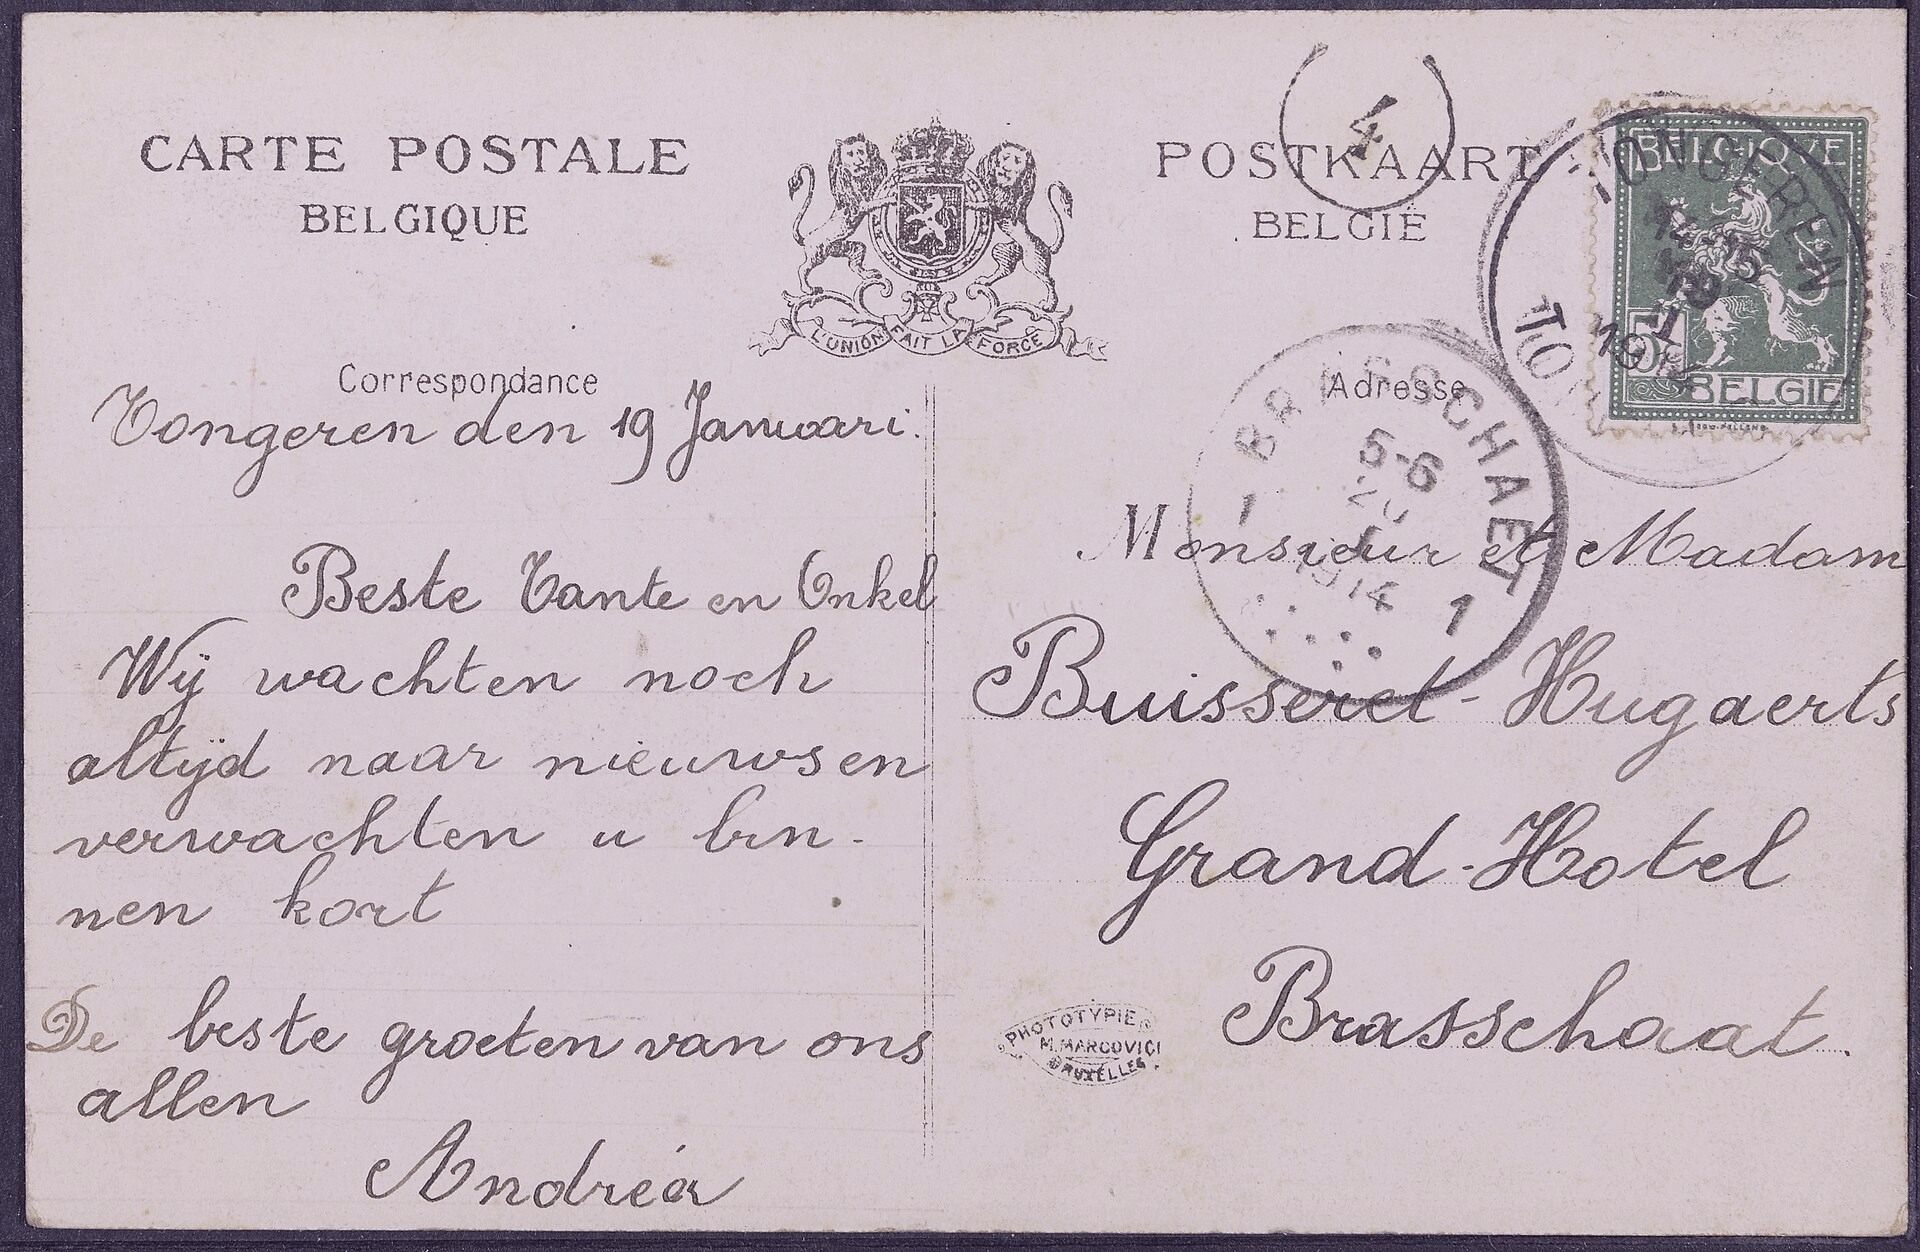 CARTE POSTALE
BELGIQUE
L'UNION FAIT LA FORCE
POSTKAART
BELGIË
4
BELGIQUE
5c
BELGIË
TONGEREN
19
I
BRASSCHAET
5-6
20
I
1914
1 1
Correspondance
Tongeren den 19 Januari.
Beste Tante en Onkel
Wij wachten noch
altijd naar nieuws en
verwachten u bin-
nen kort
De beste groeten van ons
allen
Andréa
Adresse
Monsieur et Madam
Buisseret-Hugaerts
Grand-Hotel
Brasschaat.
PHOTOTYPIE
M. MARCOVICI
BRUXELLES.